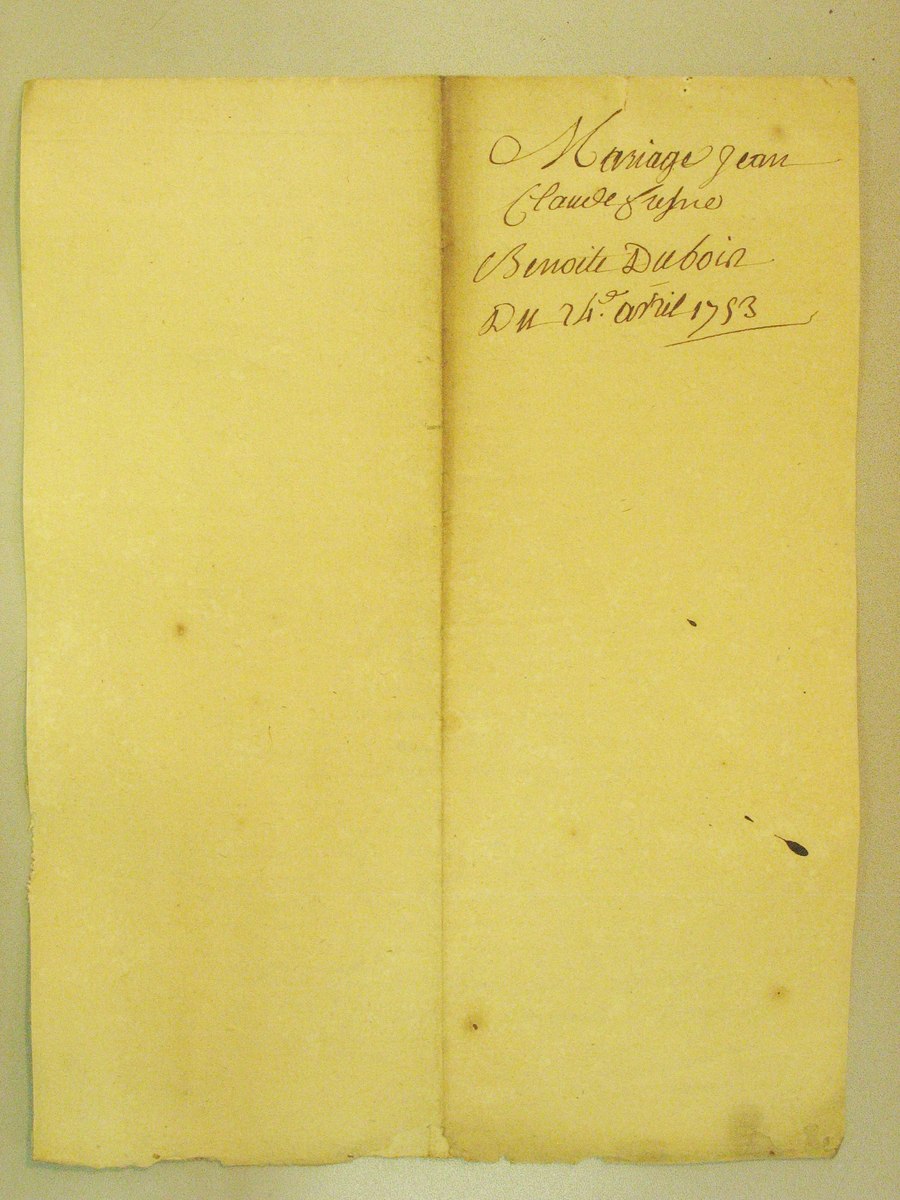 Mariage Jean
Claude
Benoite Dubois
Du 24.e avril 1753